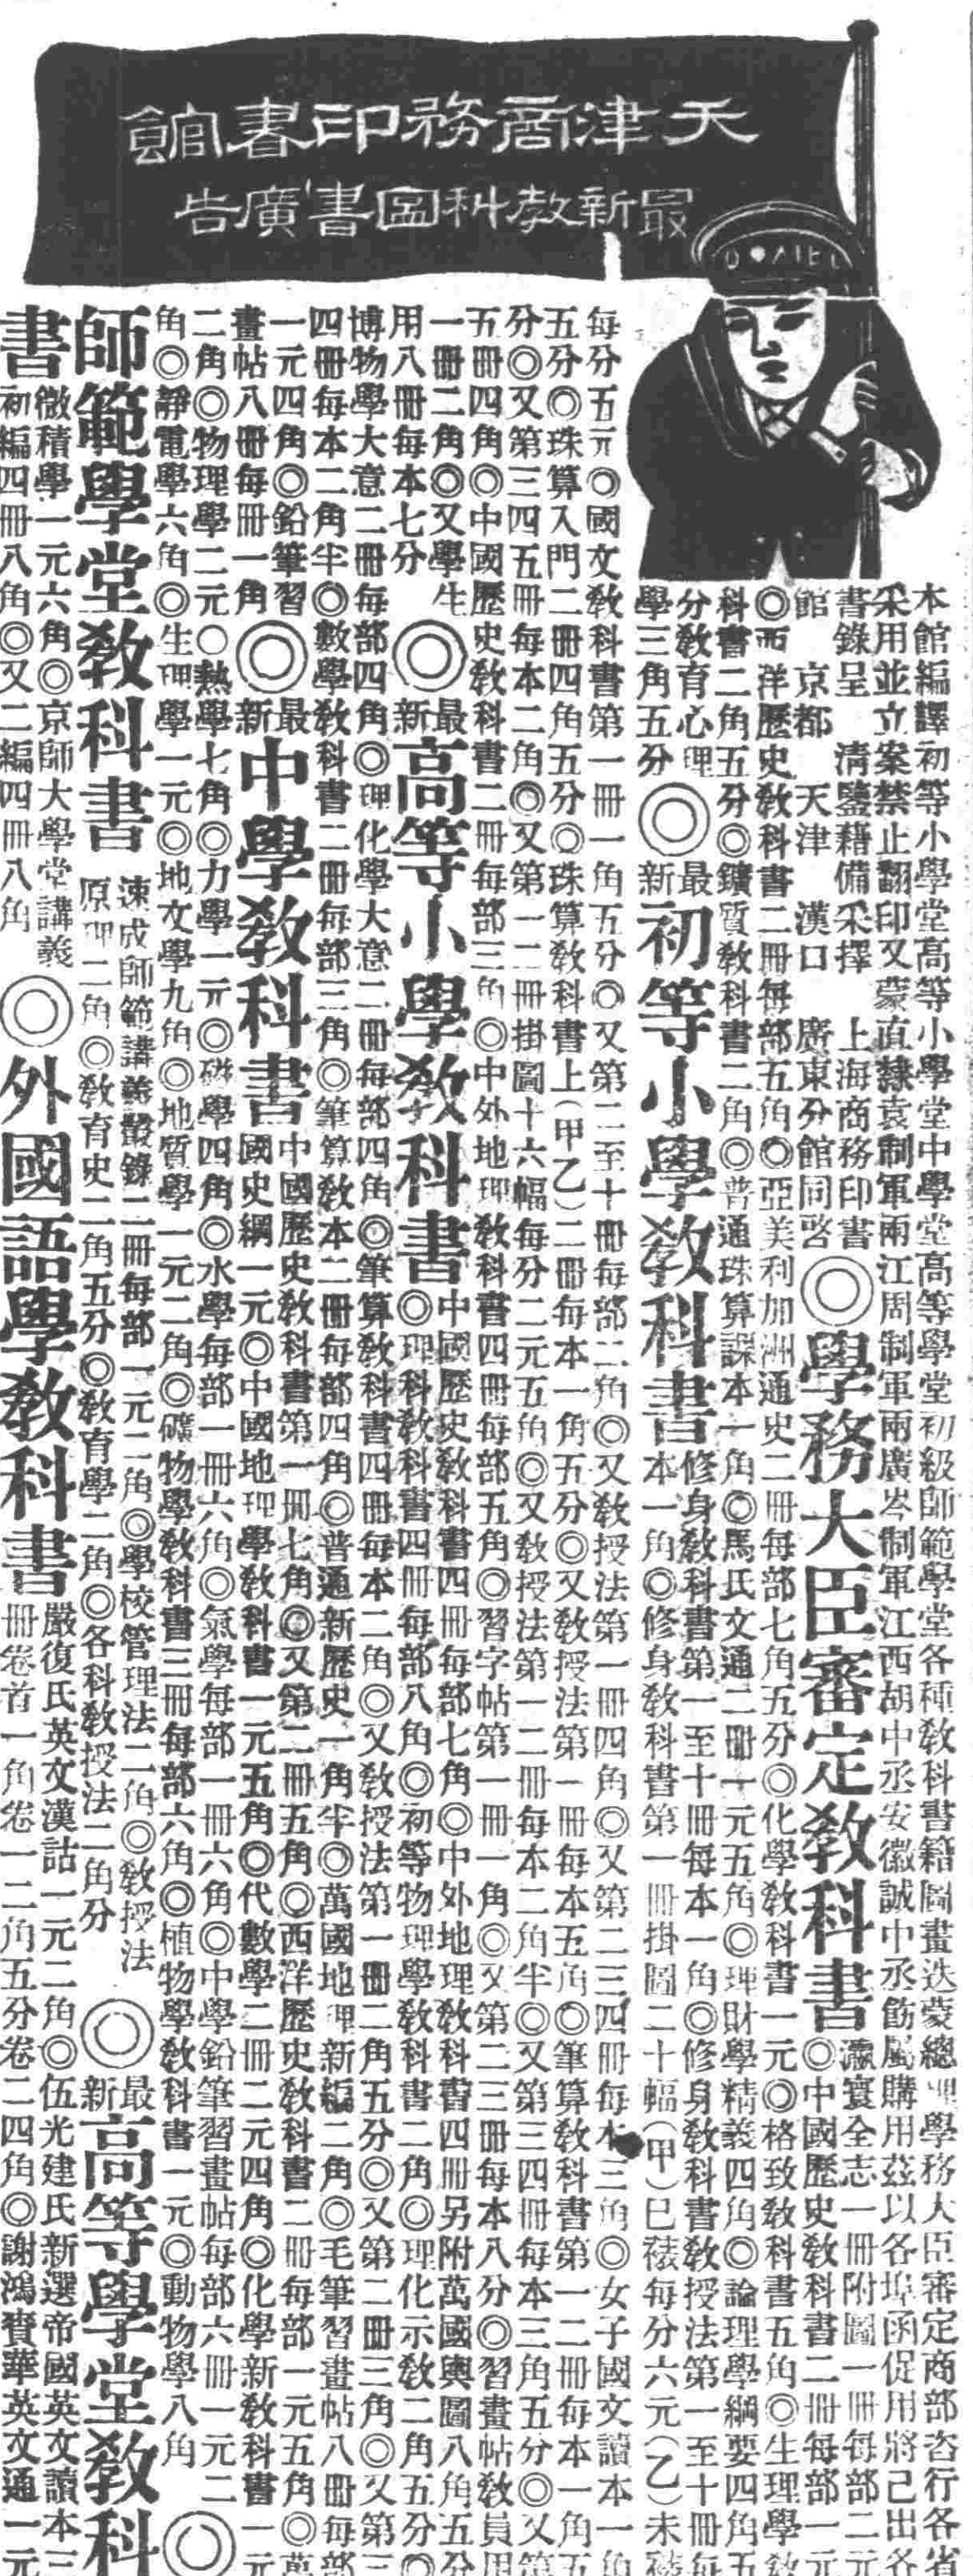 天津商務印書館
最新教科圖書廣告
本館編譯初等小學堂高等小學堂中學堂高等學堂初級師範學堂各種教科書籍圖畫迭蒙總理學務大臣審定商部咨行各省
采用並立案禁止翻印又蒙直隸袁制軍兩江周制軍兩廣岑制軍江西胡中丞安徽誠中丞飭屬購用茲以各埠函促用將已出各
書錄呈 清鑒藉備采擇 上海商務印書
館 京都 天津 漢口 廣東分館同啓
◎學務大臣審定教科書
瀛寰全志一冊附圖一冊每部二元
◎中國歷史教科書二冊每部一元
◎西洋歷史教科書二冊每部五角◎亞美利加洲通史二冊每部七角五分◎化學教科書一元◎格致教科書五角◎生理學教
科書二角五分◎鑛質教科書二角◎普通珠算課本一角◎馬氏文通二冊一元五角◎理財學精義四角◎論理學綱要四角五
分教育心理
學三角五分
◎最新初等小學教科書
修身教科書第一至十冊每本一角◎修身教科書教授法第一至十冊每
本一角◎修身教科書第一冊掛圖二十幅(甲)已裱每分六元(乙)未裱
每分五元◎國文教科書第一冊一角五分◎又第二至十冊每部二角◎又教授法第一冊四角◎又第二三四冊每本三角◎女子國文讀本一角
五分◎珠算入門二冊四角五分◎珠算教科書上(甲乙)二冊每本一角五分◎又教授法第一冊每本五角◎筆算教科書第一二冊每本一角五
分◎又第三四五冊每本二角◎又第一二冊掛圖十六幅每分二元五角◎又教授法第一二冊每本二角半◎又第三四冊每本三角五分◎又第
五冊四角◎中國歷史教科書二冊每部三角◎中外地理教科書四冊每部五角◎習字帖第一冊一角◎又第二三冊每本八分◎習畫帖教員用
一冊二角◎又學生
用八冊每本七分
◎最新高等小學教科書
中國歷史教科書四冊每部七角◎中外地理教科書四冊另附萬國輿圖八角五分
◎理科教科書四冊每部八角◎初等物理學教科書二角◎理化示教二角五分◎
博物學大意二冊每部四角◎理化學大意二冊每部四角◎筆算教科書四冊每本二角◎又教授法第一冊二角五分◎又第二冊三角◎又第三
四冊每本二角半◎數學教科書二冊每部三角◎筆算教本二冊每部四角◎普通新歷史一角半◎萬國地理新編二角◎毛筆習畫帖八冊每部
一元四角◎鉛筆習
畫帖八冊每冊一角
◎最新中學教科書
中國歷史教科書第一冊七角◎又第二冊五角◎西洋歷史教科書二冊每部一元五角◎萬
國史綱一元◎中國地理學教科書一元五角◎代數學二冊二元四角◎化學新教科書一元
二角◎物理學二元○熱學七角◎力學一元◎磁學四角◎水學每部一冊六角◎氣學每部一冊六角◎中學鉛筆習畫帖每部六冊一元二
角◎靜電學六角◎生理學一元◎地文學九角◎地質學一元二角◎礦物學教科書三冊每部六角◎植物學教科書一元◎動物學八角
◎
師範學堂教科書
速成師範講義叢錄二冊每部一元二角◎學校管理法二角◎教授法
原理二角◎教育史二角五分◎教育學二角◎各科教授法二角分
◎最新高等學堂教科
書
微積學一元六角◎京師大學堂講義
初編四冊八角◎又二編四冊八角
◎外國語學教科書
嚴復氏英文漢詁一元二角◎伍光建氏新選帝國英文讀本三
冊卷首一角卷一二角五分卷二四角◎謝鴻賚華英文通一元